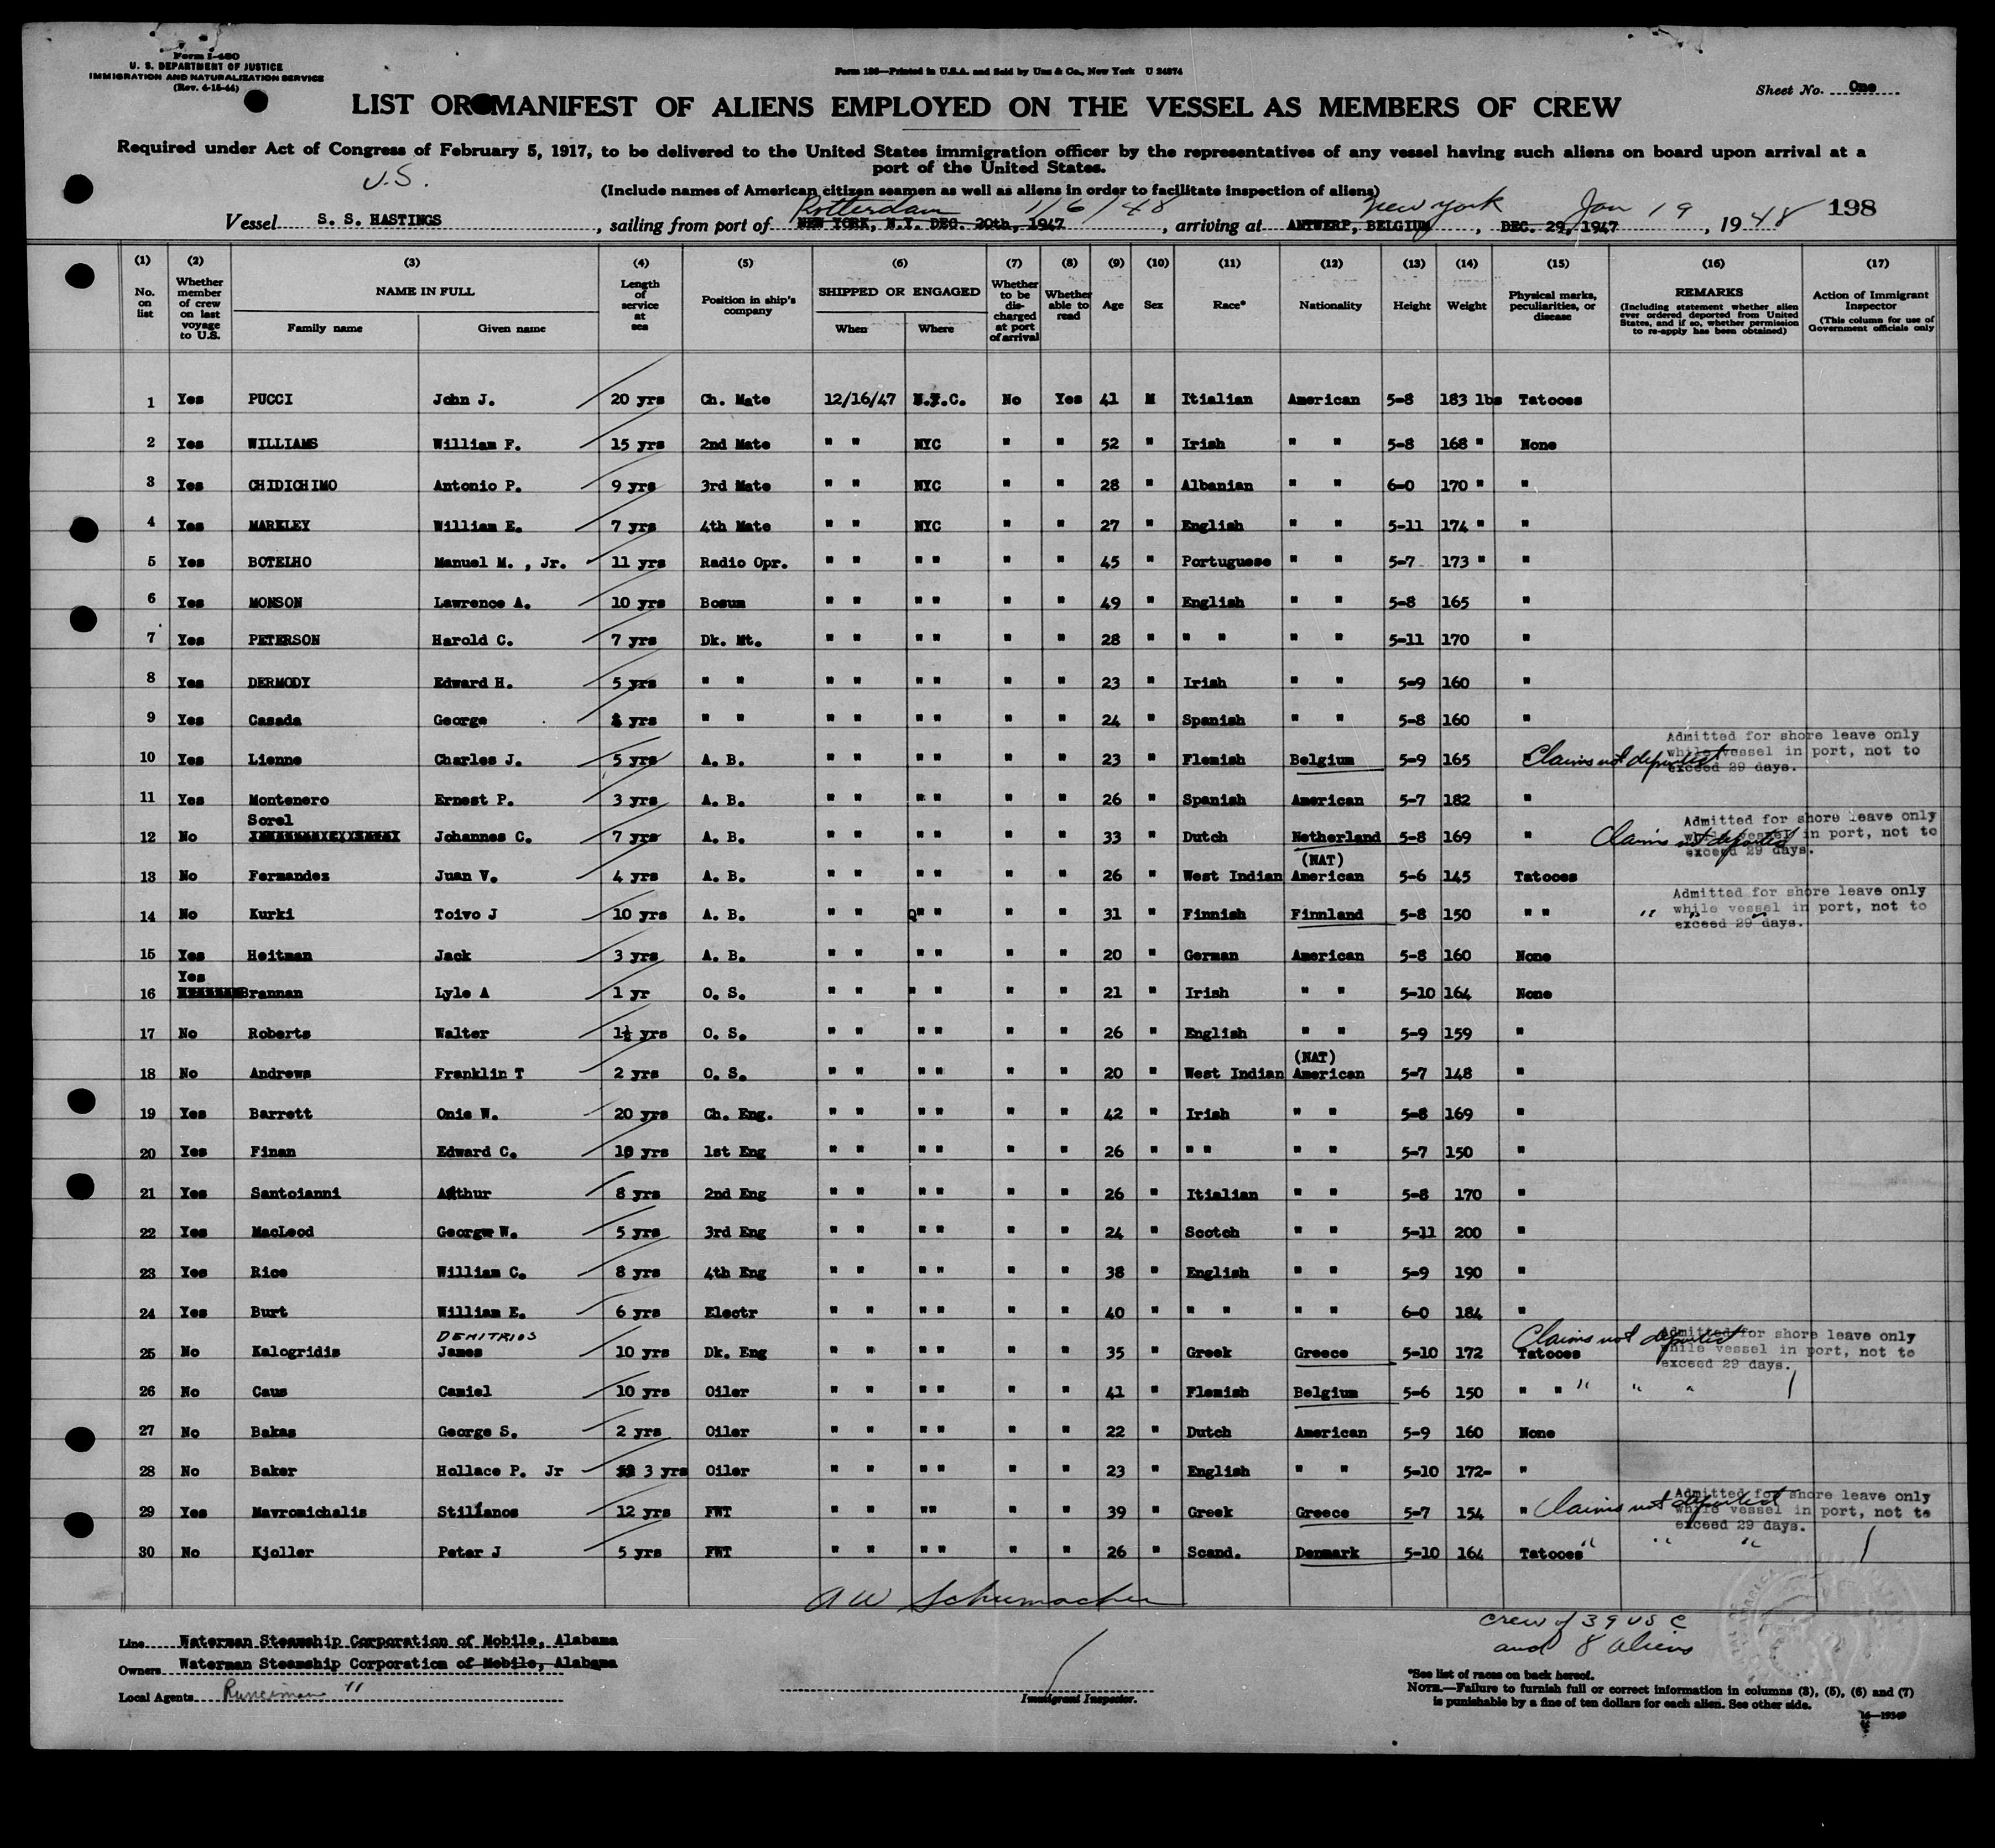 Form I-480
U. S. DEPARTMENT OF JUSTICE
IMMIGRATION AND NATURALIZATION SERVICE
(Rev. 4-15-44)
Form 186—Printed in U.S.A. and Sold by Unz & Co., New York U 24874
Sheet No. One
LIST OR MANIFEST OF ALIENS EMPLOYED ON THE VESSEL AS MEMBERS OF CREW
Required under Act of Congress of February 5, 1917, to be delivered to the United States immigration officer by the representatives of any vessel having such aliens on board upon arrival at a
port of the United States.
U.S.
(Include names of American citizen seamen as well as aliens in order to facilitate inspection of aliens)
Rotterdam 1/6/48 New York Jan 19
Vessel S. S. HASTINGS, sailing from port of NEW YORK, N.Y. DEC. 20th, 1947, arriving at ANTWERP, BELGIUM, DEC. 29, 1947, 1948 198
(1) No. on list
(2) Whether member of crew on last voyage to U.S.
(3) NAME IN FULL Family name Given name
(4) Length of service at sea
(5) Position in ship's company
(6) SHIPPED OR ENGAGED When Where
(7) Whether to be discharged at port of arrival
(8) Whether able to read
(9) Age
(10) Sex
(11) Race*
(12) Nationality
(13) Height
(14) Weight
(15) Physical marks, peculiarities, or disease
(16) REMARKS (Including statement whether alien ever ordered deported from United States, and if so, whether permission to re-apply has been obtained)
(17) Action of Immigrant Inspector (This column for use of Government officials only)
1 Yes PUCCI John J. 20 yrs Ch. Mate 12/16/47 N.Y.C. No Yes 41 M Itialian American 5-8 183 lbs Tatooes
2 Yes WILLIAMS William F. 15 yrs 2nd Mate " " NYC " " 52 " Irish " " 5-8 168 " None
3 Yes CHIDICHIMO Antonio P. 9 yrs 3rd Mate " " NYC " " 28 " Albanian " " 6-0 170 " "
4 Yes MARKLEY William E. 7 yrs 4th Mate " " NYC " " 27 " English " " 5-11 174 " "
5 Yes BOTELHO Manuel M. , Jr. 11 yrs Radio Opr. " " " " " " 45 " Portuguese " " 5-7 173 " "
6 Yes MONSON Lawrence A. 10 yrs Bosum " " " " " " 49 " English " " 5-8 165 "
7 Yes PETERSON Harold C. 7 yrs Dk. Mt. " " " " " " 28 " " " " " 5-11 170 "
8 Yes DERMODY Edward H. 5 yrs " " " " " " " " 23 " Irish " " 5-9 160 "
9 Yes Casada George yrs " " " " " " " " 24 " Spanish " " 5-8 160 "
10 Yes Lienne Charles J. 5 yrs A. B. " " " " " " 23 " Flemish Belgium 5-9 165 " Claims not deported
Admitted for shore leave only
while vessel in port, not to
exceed 29 days.
11 Yes Montenero Ernest P. 3 yrs A. B. " " " " " " 26 " Spanish American 5-7 182 "
Sorel
12 No Johannes C. 7 yrs A. B. " " " " " " 33 " Dutch Netherland 5-8 169 " Claims not deported
Admitted for shore leave only
while vessel in port, not to
exceed 29 days.
(NAT)
13 No Fernandez Juan V. 4 yrs A. B. " " " " " " 26 " West Indian American 5-6 145 Tatooes
14 No Kurki Toivo J 10 yrs A. B. " " " " " " 31 " Finnish Finnland 5-8 150 " " " " "
Admitted for shore leave only
while vessel in port, not to
exceed 29 days.
15 Yes Heitman Jack 3 yrs A. B. " " " " " " 20 " German American 5-8 160 None
Yes
16 Brannan Lyle A 1 yr O. S. " " " " " " 21 " Irish " " 5-10 164 None
17 No Roberts Walter 1½ yrs O. S. " " " " " " 26 " English " " 5-9 159 "
(NAT)
18 No Andrews Franklin T 2 yrs O. S. " " " " " " 20 " West Indian American 5-7 148 "
19 Yes Barrett Onie W. 20 yrs Ch. Eng. " " " " " " 42 " Irish " " 5-8 169 "
20 Yes Finan Edward C. 10 yrs 1st Eng " " " " " " 26 " " " " " 5-7 150 "
21 Yes Santoianni Arthur 8 yrs 2nd Eng " " " " " " 26 " Itialian " " 5-8 170 "
22 Yes MacLeod George W. 5 yrs 3rd Eng " " " " " " 24 " Scotch " " 5-11 200 "
23 Yes Rice William C. 8 yrs 4th Eng " " " " " " 38 " English " " 5-9 190 "
24 Yes Burt William E. 6 yrs Electr " " " " " " 40 " " " " " 6-0 184 "
DEMITRIOS
25 No Kalogridis James 10 yrs Dk. Eng " " " " " " 35 " Greek Greece 5-10 172 Tatooes Claims not deported
Admitted for shore leave only
while vessel in port, not to
exceed 29 days.
26 No Caus Camiel 10 yrs Oiler " " " " " " 41 " Flemish Belgium 5-6 150 " " " " "
27 No Bakas George S. 2 yrs Oiler " " " " " " 22 " Dutch American 5-9 160 None
28 No Baker Hollace P. Jr 3 yrs Oiler " " " " " " 23 " English " " 5-10 172- "
29 Yes Mavromichalis Stilianos 12 yrs FWT " " " " " " 39 " Greek Greece 5-7 154 " Claims not deported
Admitted for shore leave only
while vessel in port, not to
exceed 29 days.
30 No Kjoller Peter J 5 yrs FWT " " " " " " 26 " Scand. Denmark 5-10 164 Tatooes " " "
A W Schumacher
crew of 39 US C
and 8 aliens
Line Waterman Steamship Corporation of Mobile, Alabama
Owners Waterman Steamship Corporation of Mobile, Alabama
Local Agents Runciman "
Immigrant Inspector.
*See list of races on back hereof.
NOTE.—Failure to furnish full or correct information in columns (3), (5), (6) and (7)
is punishable by a fine of ten dollars for each alien. See other side.
16—19349